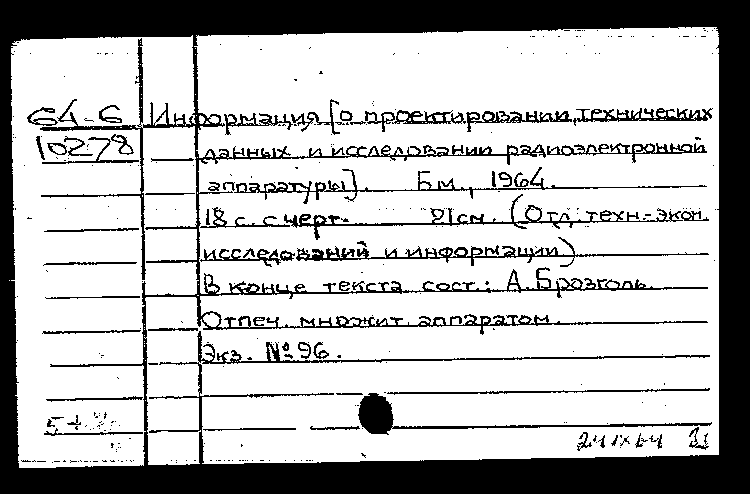 64-6 Информация [о проектировании, технических
10278 данных и исследовании радиоэлектронной
аппаратуры]. Б.м., 1964.
18 с. с черт. 21 см. (Отд. техн.-экон.
исследований и информации)
В конце текста сост.: А. Брозголь.
Отпеч. множит. аппаратом.
Экз. № 96.
5+
24 IX 64